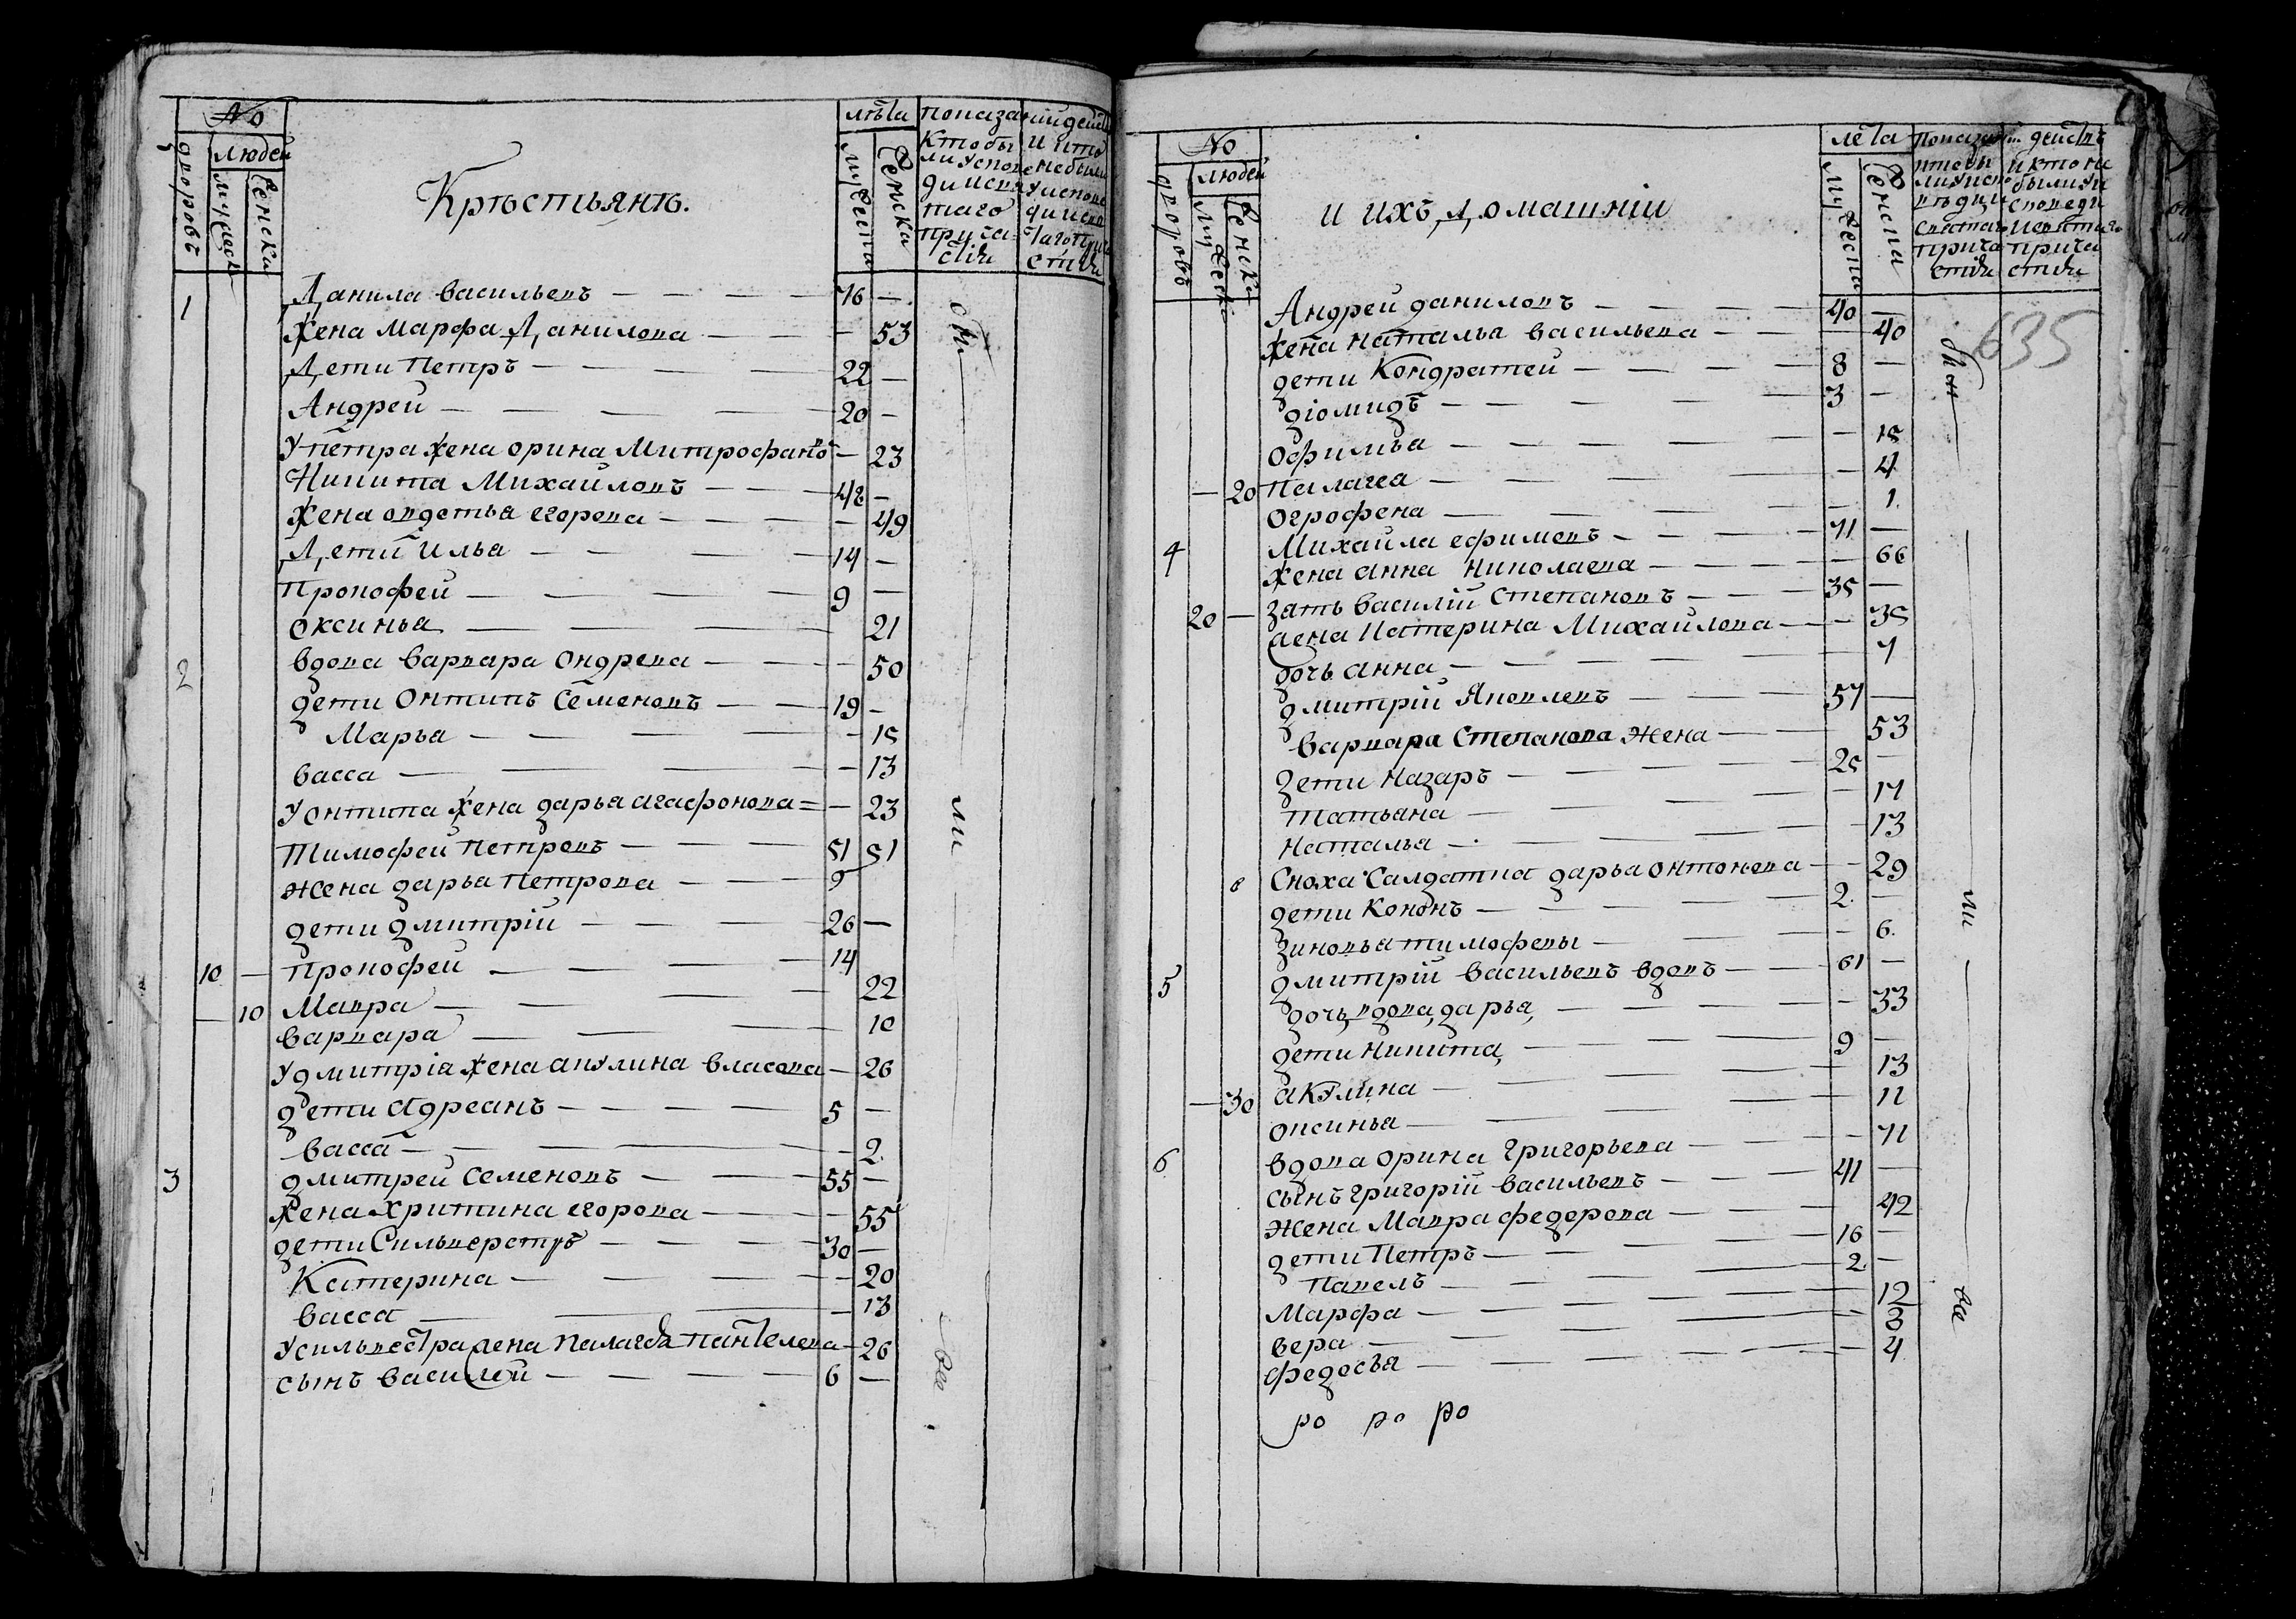 №
людей
дворовъ
мужеск
женски
Кръстьянъ.
лѣта
мужеска
женска
показании действ
Кто бы
ли у испове
ди и свя
таго
прича
стія
и кто
не были
у испове
ди и свя
таго прича
стія
1 Данила васильевъ — 76 —
жена марфа Данилова — 53
Дети Петръ — 22 —
Андрей — 20 —
У петра жена орина Митрофанова — 23
Никита Михайловъ — 48 —
жена овдотья егорова — 49
Дети Илья — 14 —
Прокофей — 9 —
оксинья — 21
2 вдова варвара ондрева — 50
дети Онтипъ Семеновъ — 19 —
Марья — 15
васса — 13
У онтипа жена дарья агафонова — 23
Тимофей петровъ — 51 51
жена дарья Петрова — 9
дети дмитрій — 26 —
10 — Прокофей — 14
— 10 Мавра — 22
варвара — 10
У дмитріа жена акулина власова — 26
дети Адреанъ — 5 —
васса — 2
3 дмитрей Семеновъ — 55 —
жена Хритина егорова — 55
дети Сильверстръ — 30 —
Катерина — 20
васса — 13
У сильвестра жена палагея пантелева — 26
сынъ василей — 6 —
бы
ли
все
№
людей
дворовъ
мужески
женски
и ихъ домашніи
лета
мужеска
женска
показании действъ
кто бы
ли у испо
въди и
святаго
прича
стія
и кто не
были у и
споведи
и святаго
прича
стія
635
Андрей даниловъ — 40 —
жена наталья васильева — 40
дети Кондратей — 8 —
діомидъ — 3 —
офимья — 15
— 20 Пелагея — 4
огрофена — 1.
4 Михайла ефимовъ — 71 —
жена анна николаева — 66
20 — зять василій степановъ — 35 —
жена Катерина Михайлова — 35
дочь анна — 7
дмитрій Яковлевъ — 57 —
варвара степанова жена — 53
дети назаръ — 25 —
татьяна — 17
наталья — 13
Сноха Салдатка дарья онтонова — 29
дети Кононъ — 2. —
зиновья тимофевы — 6.
5 дмитрій васильевъ вдовъ — 61 —
дочь вдова дарья — 33
дети никита — 9 —
— 30 акулина — 13
оксинья — 11
6 вдова орина григорьева — 71
сынъ григорій васильевъ — 41 —
жена Мавра федорова — 42
дети Петръ — 16 —
павелъ — 2 —
Марфа — 12
вера — 3
федосья — 4
бы
ли
все
ро ро ро